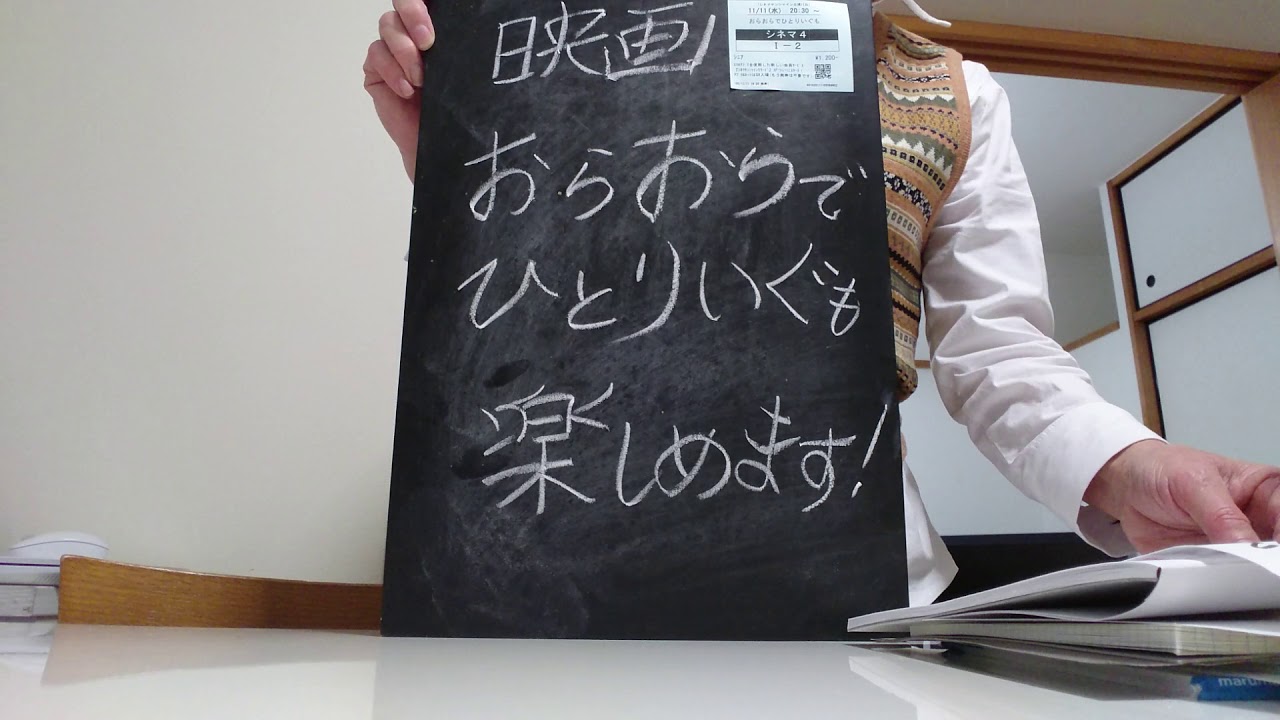 映画
11/11(水) 20:30 ～
おらおらでひとりいぐも
シネマ4
I－2
¥1,200-
おらおらで
ひとりいぐも
楽しめます!